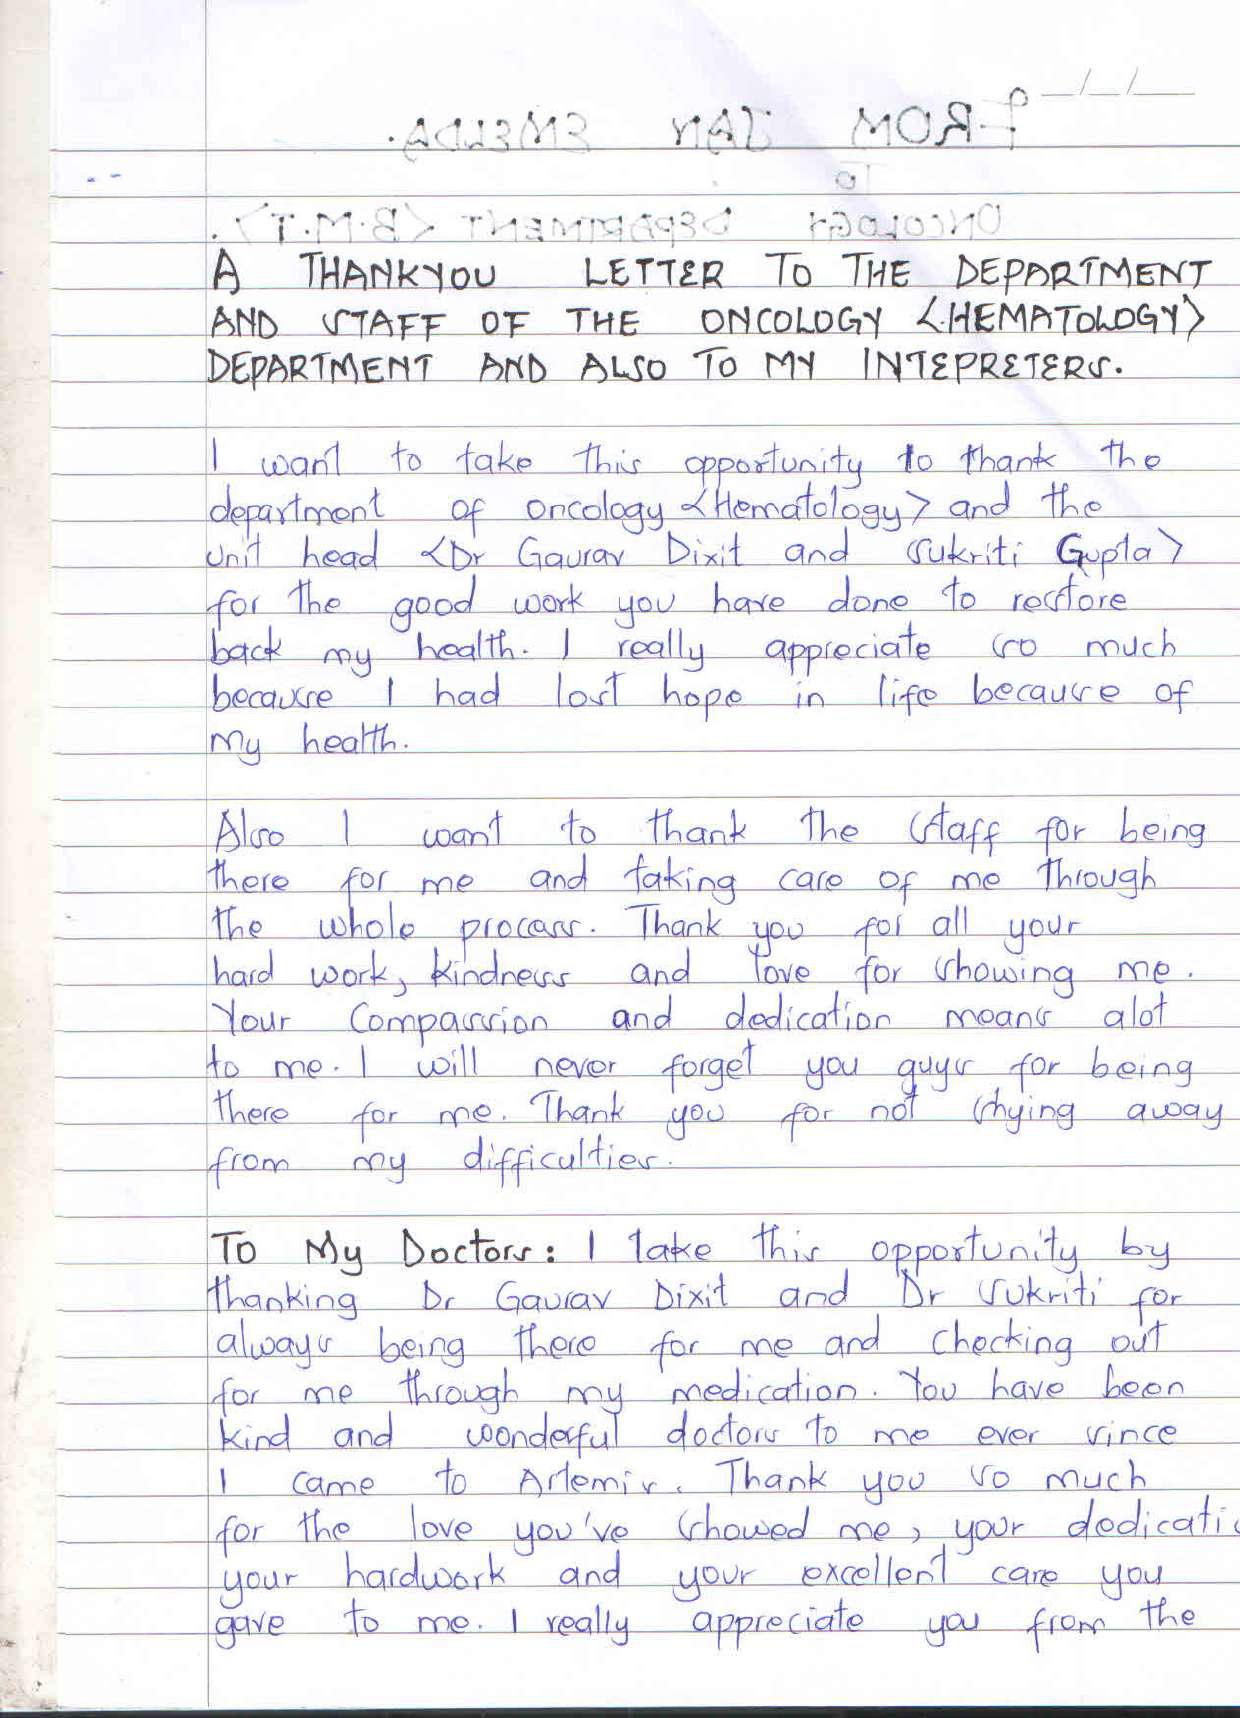 FROM JAN EMELDA.
TO
ONCOLOGY DEPARTMENT <B.M.T>.
A THANKYOU LETTER TO THE DEPARTMENT
AND STAFF OF THE ONCOLOGY <HEMATOLOGY>
DEPARTMENT AND ALSO TO MY INTEPRETERS.
I want to take this opportunity to thank the
department of oncology <Hematology> and the
unit head <Dr Gaurav Dixit and Sukriti Gupta>
for the good work you have done to restore
back my health. I really appreciate so much
because I had lost hope in life because of
my health.
Also I want to thank the staff for being
there for me and taking care of me through
the whole process. Thank you for all your
hard work, kindness and love for showing me.
Your Compassion and dedication means alot
to me. I will never forget you guys for being
there for me. Thank you for not shying away
from my difficulties.
To My Doctors: I take this opportunity by
thanking Dr Gaurav Dixit and Dr Sukriti for
always being there for me and checking out
for me through my medication. You have been
kind and wonderful doctors to me ever since
I came to Artemis. Thank you so much
for the love you've showed me, your dedicati
your hardwork and your excellent care you
gave to me. I really appreciate you from the